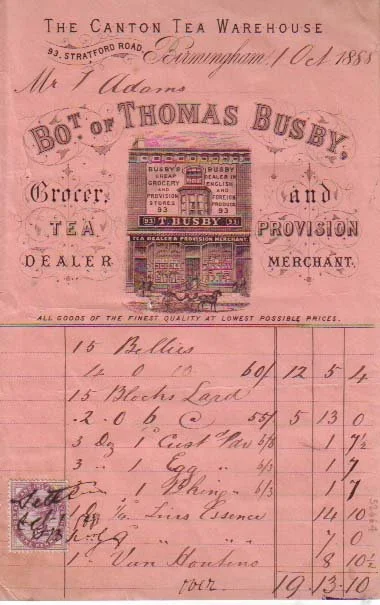 THE CANTON TEA WAREHOUSE
93, STRATFORD ROAD,
Birmingham, 1 Oct 1888
Mr T Adams
BOT. OF THOMAS BUSBY,
Grocer, and
TEA PROVISION
DEALER MERCHANT.
BUSBY'S CHEAP GROCERY AND PROVISION STORES 93
BUSBY DEALER IN ENGLISH AND FOREIGN 93
93 T. BUSBY 93
TEA DEALER & PROVISION MERCHANT.
ALL GOODS OF THE FINEST QUALITY AT LOWEST POSSIBLE PRICES.
15 Bellies
4 0 60/ 12 5 4
15 Blocks Lard
2 0 6 @ 55/ 5 13 0
3 Dz 1d Cust Pdr 6/8 1 7½
3 " 1d Egg " 6/3 1 7
1d Bking " 6/3 1 7
1 Essence 14 10
" " 7 0
1 Van Houtens 8 10½
over 19-13-10